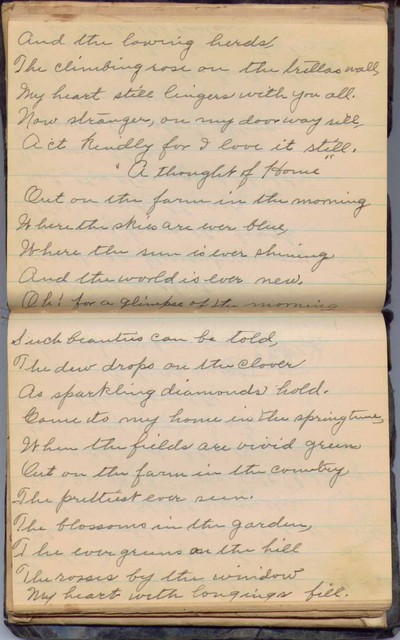 And the lowing herds,
The climbing rose on the trellas wall,
My heart still lingers with you all.
Now stranger, on my doorway sill,
Act kindly for I love it still.
"A thought of Home"
Out on the farm in the morning
Where the skies are ever blue,
Where the sun is ever shining
And the world is ever new.
Oh! for a glimpse of the morning
Such beauties can be told,
The dew drops on the clover
As sparkling diamonds hold.
Come to my home in the springtime,
When the fields are vivid green
Out on the farm in the country
The prettiest ever seen.
The blossoms in the garden,
The evergreens on the hill
The roses by the window
My heart with longings fill.